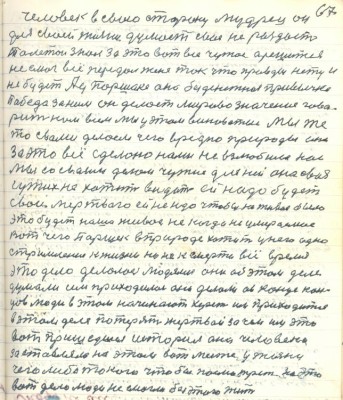 67
человек в свою сторону мудрец он
для своей жизни думает свое не раздать
за это вот все чужое
не смог всё передал же ток что правды нету и
не будет
победа за ним он делает мирово значение гово-
рит ним всем мы у этом виноватые мы же
то сами делаем чего вредно природы она
за это всё сделано нами не возлюбила нас
мы со своим делом чужие для ней она своя
чужих не хотить видеть ей надо будет
свои мертвого ей не надо чтобы на живая было
это будет наша живое не когда не умираемое
вот чего в природе хотит у него одно
стремление к жизни но не к смерти всё время
это дело делалось людями они об этом деле
думали им приходилось она делали а в конце кон-
цов люди в этом начинают им приходится
в этом деле потерять жертвой за чем им это
вот пришедшая история она человека
заставляла на этом вот месте у жизни
чего либо такого что бы посмотреть на это
вот дело люди не смогли без этого жить